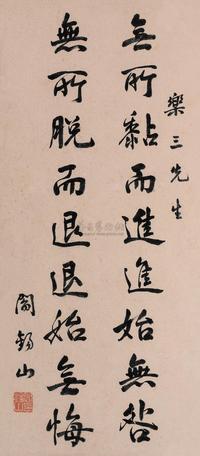 樂三先生
無所黏而進進始無咎
無所脫而退退始無悔
閻錫山